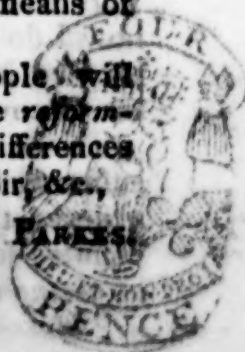 means of
FOUR
ople will
e reform-
ifferences
ir, &c.,
PARKES.
PENCE